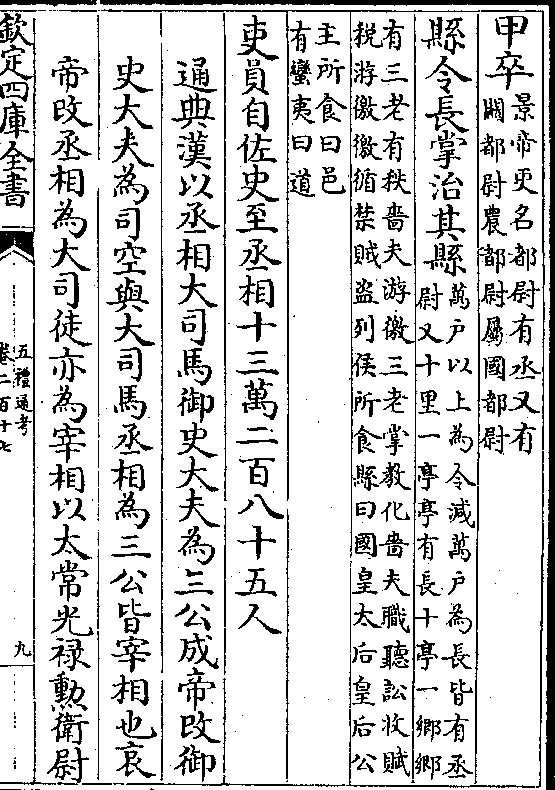 甲卒景帝更名都尉有丞又有
關都尉農都尉屬國都尉
縣令長掌治其縣萬户以上為令減萬户為長皆有丞
尉又十里一亭亭有長十亭一鄉鄉
有三老有秩嗇夫游徼三老掌教化嗇夫職聽訟收賦
税游徼徼循禁賊盗列侯所食縣曰國皇太后皇后公
主所食曰邑
有蠻夷曰道
吏員自佐史至丞相十三萬二百八十五人
通典漢以丞相大司馬御史大夫為三公成帝改御
史大夫為司空與大司馬丞相為三公皆宰相也哀
帝改丞相為大司徒亦為宰相以太常光禄勲衛尉
欽定四庫全書
五禮通考
卷二百十七
九